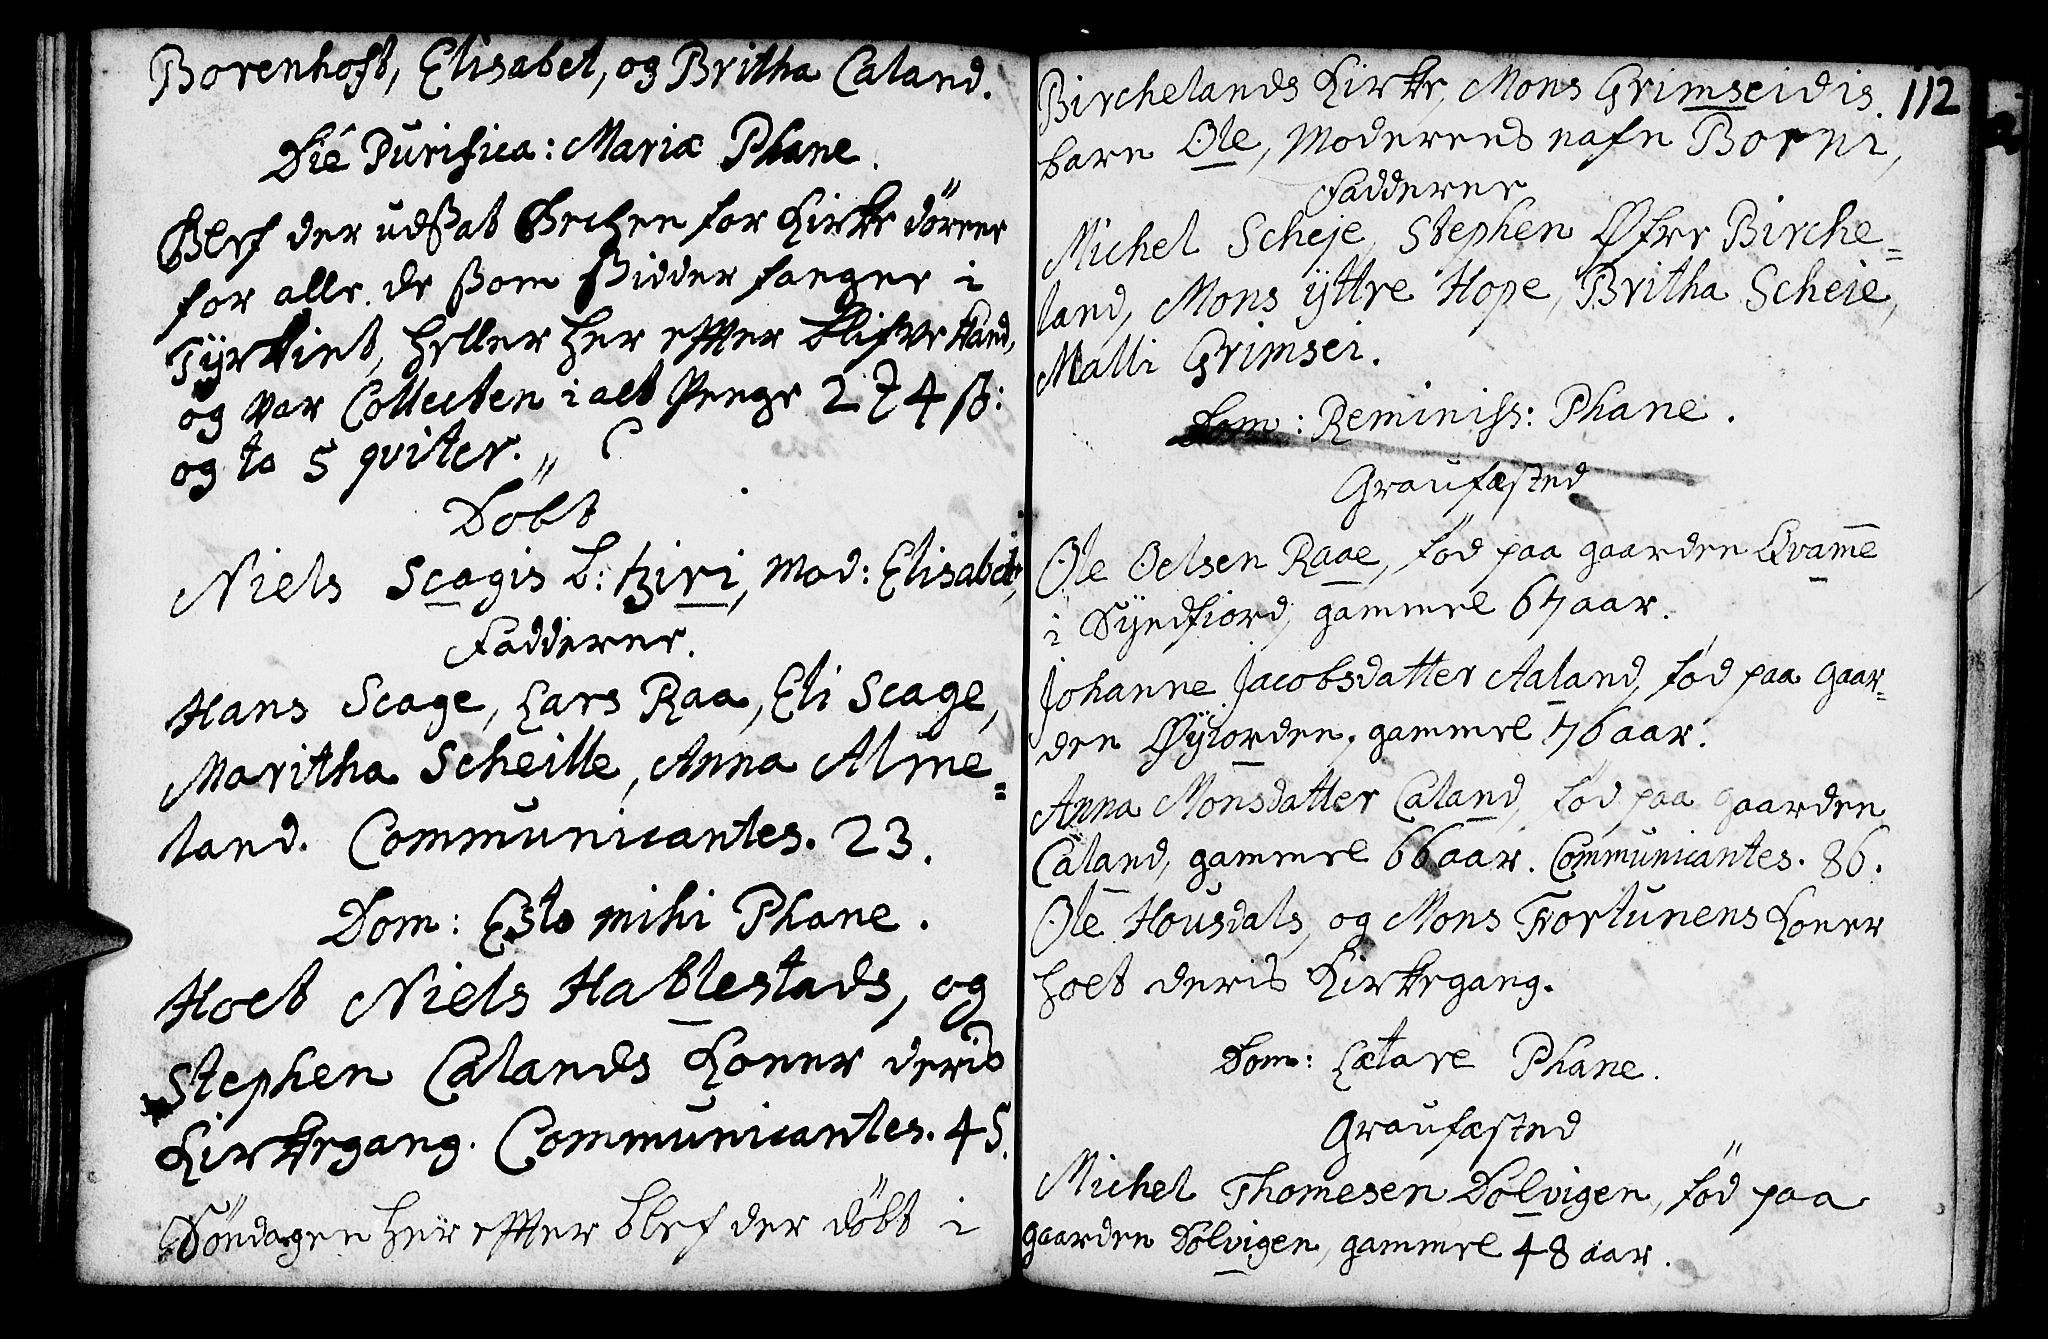 Borenhoft, Elisabet, og Britha Caland.
Die Purifica: Mariæ Phane.
Blef der udsat Becken for Kirke dörene
for alle de som sidder fanger i
Tyrkiet, heller her effter blifve kand,
og var Collecten i alt Penge 2 4 ß:
og to 5 qviter.
Döbt
Niels Scagis b: tziri, Mod: Elisabet,
Fadderne.
Hans Scage, Lars Raa, Eli Scage,
Maritha Scheille, Anna Alme=
land. Communicantes. 23.
Dom: Esto mihi Phane.
Holt Niels Hatlestads, og
Stephen Calands Koner deris
Kirkegang. Communicantes. 45.
Söndagen her effter blef der döbt i
112
Birchelands Kirke, Mons Grimseidis
barn Ole, Moderens nafn Borni,
Fadderne
Michel Scheje, Stephen Øfre Birche=
land, Mons ÿttre Hope, Britha Scheie,
Malli Grimsei.
Dom: Reminiss: Phane.
Graufæsted
Ole Oelsen Raae, föd paa gaarden Qvame
i Syndfiord, gammel 67 aar.
Johanne Jacobsdatter Aaland, föd paa Gaar=
den Øÿiorden, gammel 76 aar.
Anna Monsdatter Caland, föd paa gaarden
Caland, gammel 66 aar. Communicantes. 86.
Ole Housdals, og Mons Fortunens Koner
holt deris Kirkegang.
Dom: Lætare Phane.
Graufæsted
Michel Thomesen Dölvigen, föd paa
gaarden Dölvigen, gammel 48 aar.